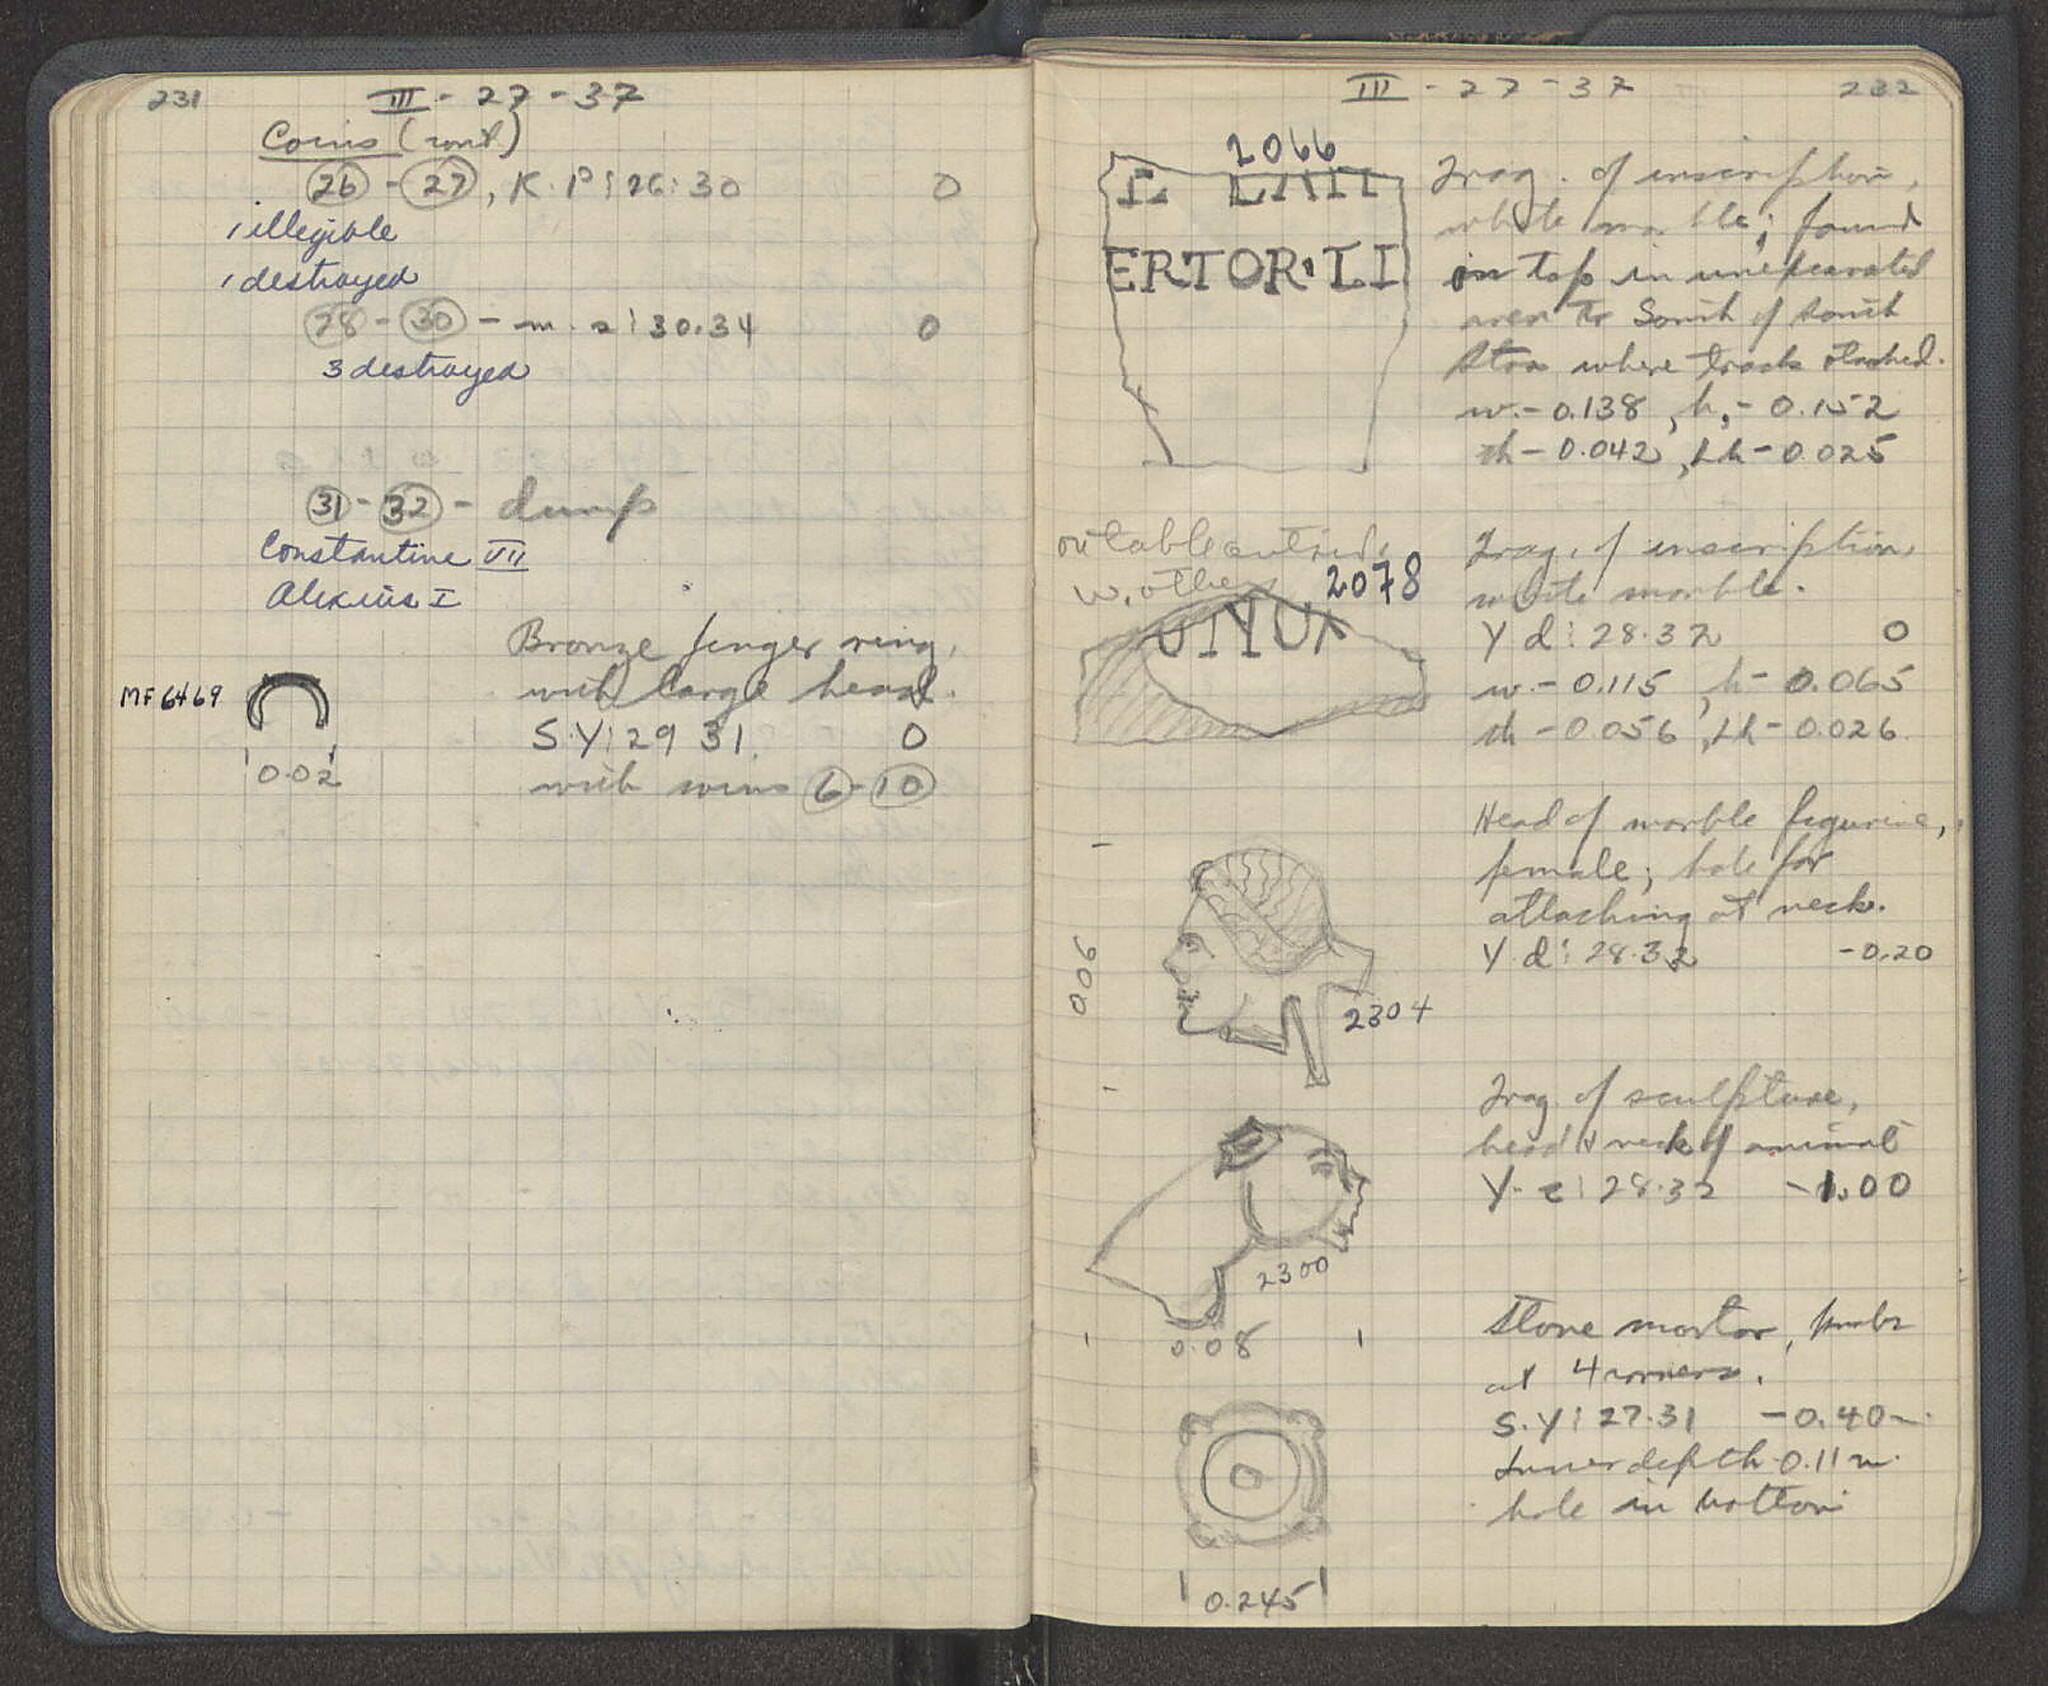 231
III - 27 - 37
Coins (cont)
26 - 27, K. P : 26 : 30 0
1 illegible
1 destroyed
28 - 30 - m. a : 30.34 0
3 destroyed
31 - 32 - dump
Constantine VII
Alexius I
Bronze finger ring,
with large head.
MF 6469
S.Y : 29 31. 0
0.02
with coins 6 - 10
III - 27 - 37
232
2066
ERTOR·LI
Frag. of inscription,
white marble; found
on top in unexcavated
area to South of South
Stoa where tracks stacked.
w. - 0.138, h. - 0.152
th - 0.042, Lh - 0.025
on table outside
w. other
2078
Frag. of inscription,
white marble.
Y d : 28.32 0
w. - 0.115, h - 0.065
th - 0.056, Lh - 0.026
Head of marble figurine,
female; hole for
attaching at neck.
Y. d : 28.32 -0.20
0.06
2304
Frag. of sculpture,
head & neck of animal
Y. e : 28.32 -1.00
2300
0.08
Stone mortar, knobs
at 4 corners.
S.Y : 27.31 -0.40 m.
Inner depth 0.11 m.
hole in bottom
0.245